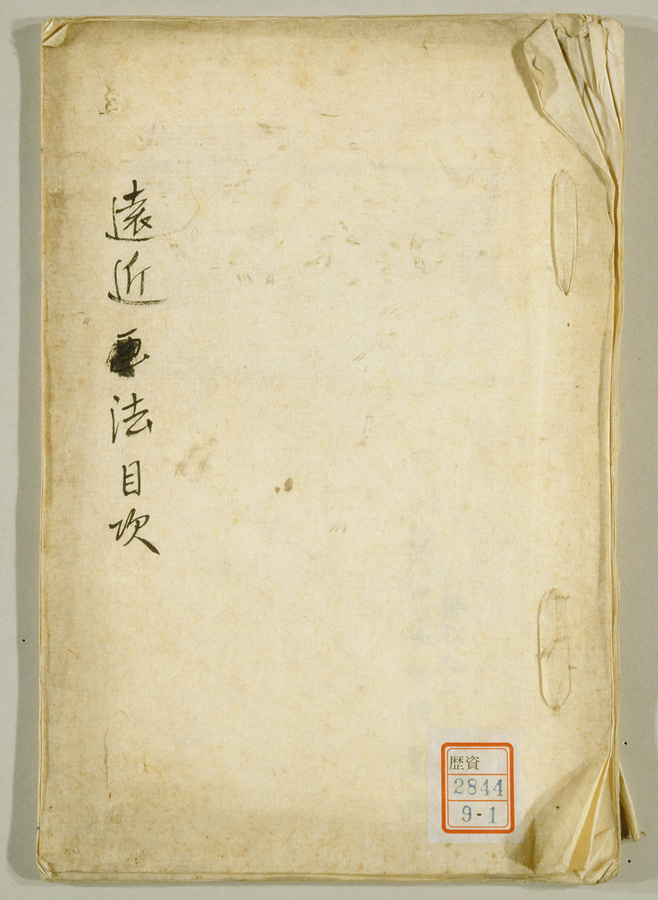 遠近画法目次
歴資
2844
9-1